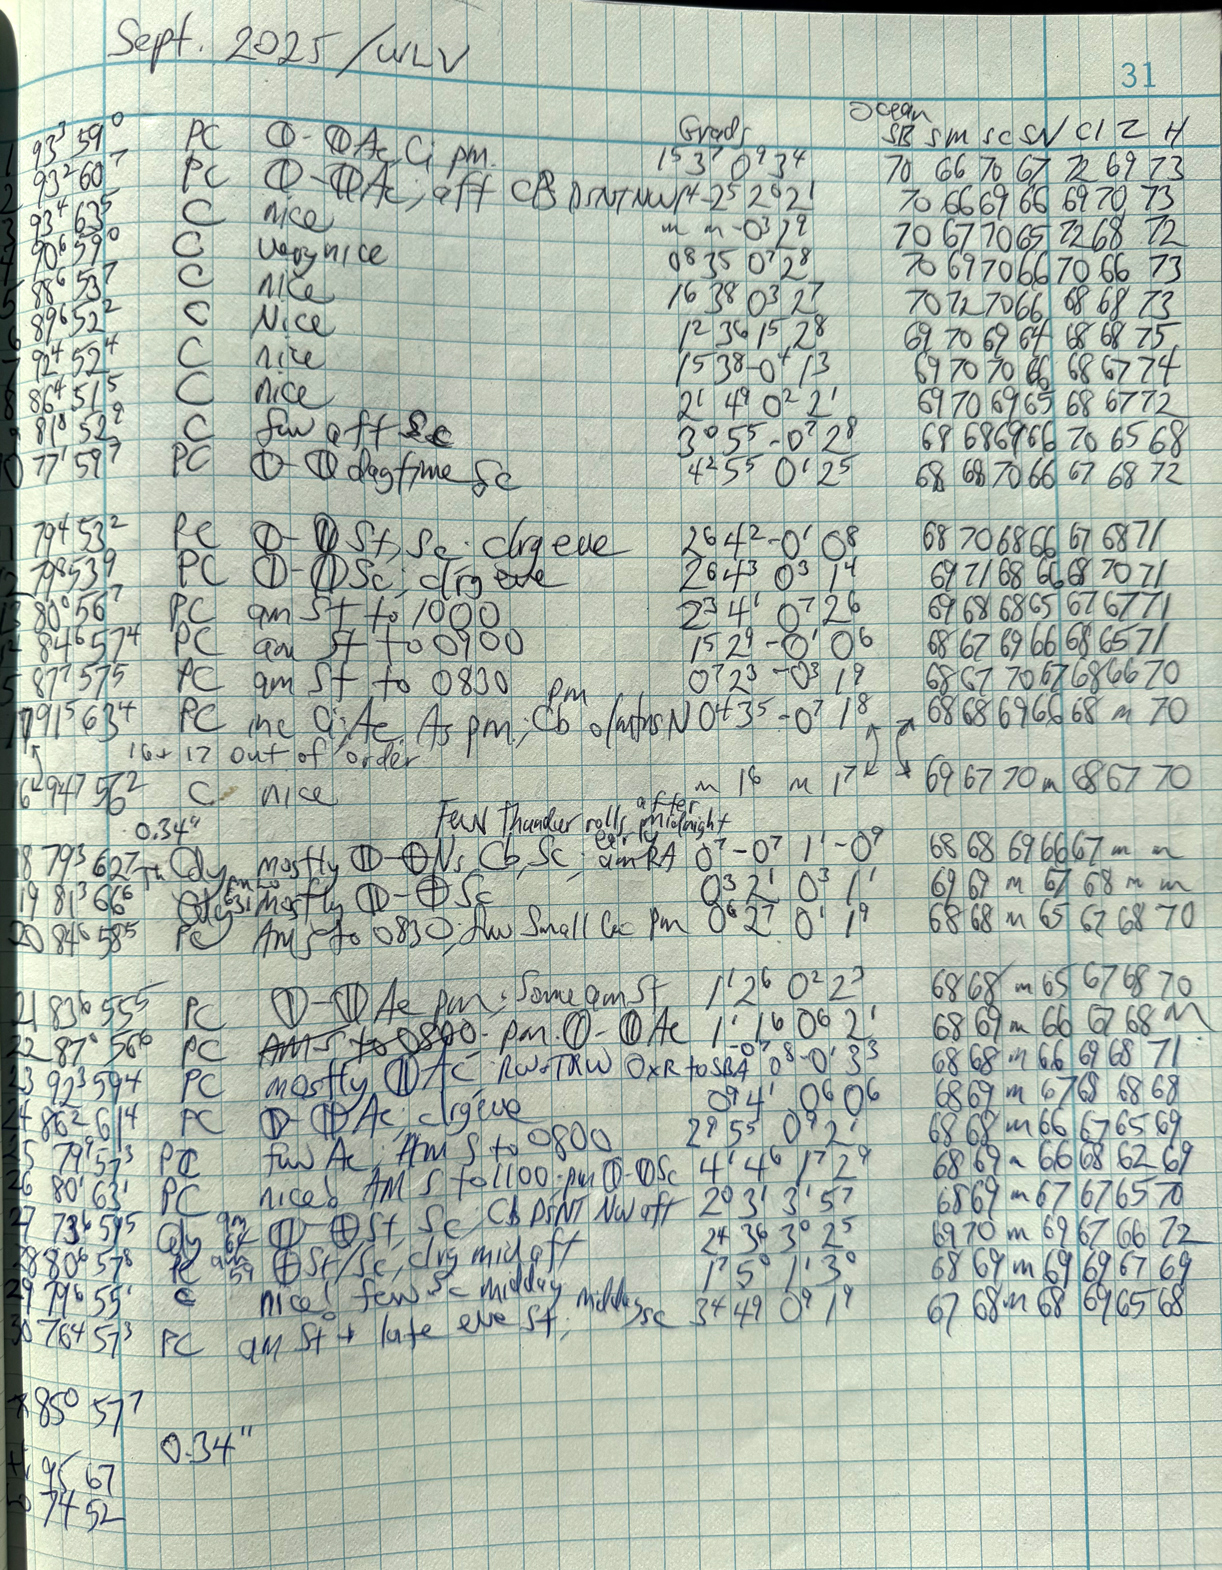 Sept. 2025 / WLV
31
Grads Ocean SB SM SC SN CI Z H
1 93³ 59⁰ PC ⦶-⦶ Ac, Ci pm. 1⁵ 3⁷ 0⁹ 3⁴ 70 66 70 67 72 69 73
2 93² 60⁷ PC ⦶-⦶ Ac; aft CB DSNT NW 1⁴ -2⁵ 2⁹ 2¹ 70 66 69 66 69 70 73
3 93⁴ 63⁵ C nice m m -0³ 2⁹ 70 67 70 65 72 68 72
4 90⁶ 59⁰ C very nice 0⁸ 3⁵ 0⁷ 2⁸ 70 69 70 66 70 66 73
5 88⁶ 53⁷ C nice 1⁶ 3⁸ 0³ 2⁷ 70 72 70 66 68 68 73
6 89⁶ 52² C Nice 1² 3⁶ 1⁵ 2⁸ 69 70 69 64 68 68 75
7 92⁴ 52⁴ C nice 1⁵ 3⁸ -0⁴ 1³ 69 70 70 66 68 67 74
8 86⁴ 51⁵ C nice 2¹ 4⁹ 0² 2¹ 69 70 69 65 68 67 72
9 81⁸ 52⁹ C few aft Sc 3⁰ 5⁵ -0⁷ 2⁸ 68 68 69 66 70 65 68
10 77¹ 59⁷ PC ⦶-⦶ daytime Sc 4² 5⁵ 0¹ 2⁵ 68 68 70 66 67 68 72
11 79⁴ 53² PC ⦶-⦶ St, Sc; clrg eve 2⁶ 4² -0¹ 0⁸ 68 70 68 66 67 68 71
12 79⁸ 53⁹ PC ⦶-⦶ Sc; clrg eve 2⁶ 4³ 0³ 1⁴ 69 71 68 66 68 70 71
13 80⁰ 56⁷ PC am St to 1000 2³ 4¹ 0⁷ 2⁶ 69 68 68 65 67 67 71
14 84⁶ 57⁴ PC am St to 0900 1⁵ 2⁹ -0¹ 0⁶ 68 67 69 66 68 65 71
15 87⁷ 57⁵ PC am St to 0830 0⁷ 2³ -0³ 1⁹ 68 67 70 67 68 66 70
17 91⁵ 63⁴ PC inc Ci, Ac, As pm; pm Cb N 0⁴ 3⁵ -0⁷ 1⁸ 68 68 69 66 68 m 70
16 + 17 out of order
16 94⁷ 56² C nice m 1⁸ m 1⁷ 69 67 70 m 68 67 70
0.34" Few Thunder rolls after midnight
18 79³ 62⁷ Cdy mostly ⦶-⊕ Ns, Cb, Sc; early am RA 0⁷ -0⁷ 1¹ -0⁹ 68 68 69 66 67 m m
19 81³ 66⁶ mostly ⦶-⊕ Sc 0³ 2¹ 0³ 1¹ 69 69 m 67 68 m m
20 84⁶ 58⁵ PC AM S to 0830; few small Cu pm 0⁶ 2⁷ 0¹ 1⁹ 68 68 m 65 67 68 70
21 83⁶ 55⁵ PC ⦶-⦶ Ac pm; some am St 1¹ 2⁶ 0² 2³ 68 68 m 65 67 68 70
22 87⁰ 56⁶ PC AM S to 0800. pm ⦶-⦶ Ac 1¹ 1⁶ 0⁶ 2¹ 68 69 m 66 67 68 M
23 92³ 59⁴ PC mostly ⦶ Ac; RW-TRW OXR to SBA -0⁷ 0⁸ -0¹ 3³ 68 68 m 66 69 68 71
24 86² 61⁴ PC ⦶-⦶ Ac; clrg eve 0⁹ 4¹ 0⁶ 0⁶ 68 69 m 67 68 68 68
25 79⁹ 57³ PC few Ac; AM S to 0800 2⁹ 5⁵ 0⁹ 2¹ 68 68 m 66 67 65 69
26 80¹ 63¹ PC nice! AM S to 1100 pm ⦶-⦶ Sc 4¹ 4⁶ 1⁷ 2⁹ 68 69 m 66 68 62 69
27 73⁶ 59⁵ Cdy am 64 ⦶-⊕ St, Sc; CB DSNT NW aft 2⁰ 3¹ 3¹ 5⁷ 68 69 m 67 67 65 70
28 80⁶ 57⁸ PC am 59 ⊕ St/Sc, clrg mid aft 2⁴ 3⁶ 3⁰ 2⁵ 69 70 m 69 67 66 72
29 79⁶ 55¹ C nice! few Sc midday 1⁷ 5⁰ 1¹ 3⁰ 68 69 m 69 69 67 69
30 76⁴ 57³ PC am St + late eve St; midday Sc 3⁴ 4⁹ 0⁹ 1⁹ 67 68 m 68 69 65 68
85⁰ 57⁷
0.34"
95 67
74 52